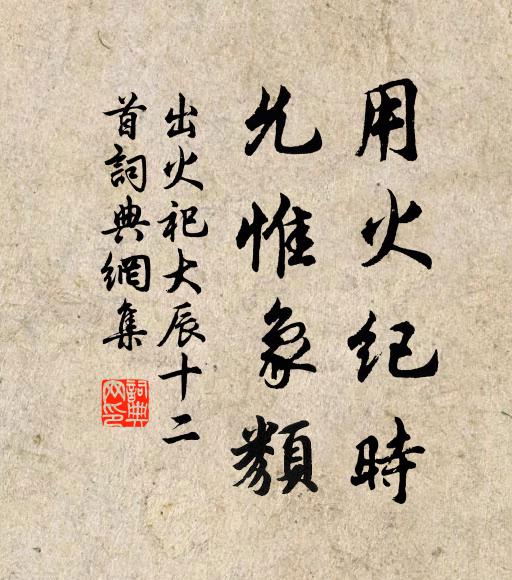 用火纪時
允惟象類
出火祀大辰十二
首詞典網集
詞典
网印